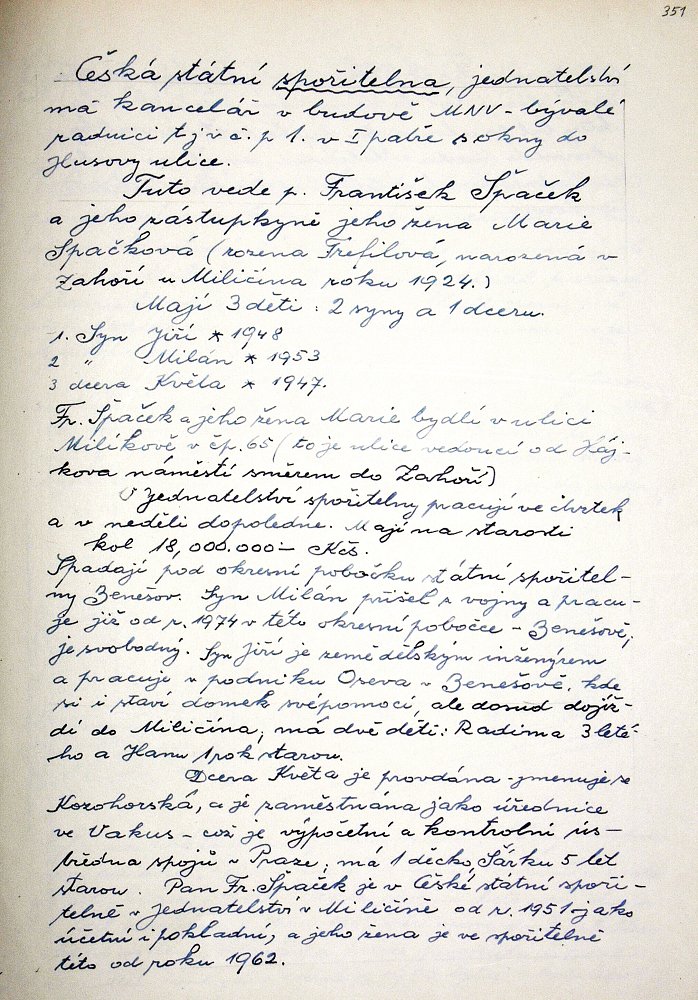 351
Česká státní spořitelna, jednatelství
má kancelář v budově MNV - bývalé
radnici t.j. v č. p 1. v I patře s okny do
Husovy ulice.
Tuto vede p. František Špaček
a jeho zástupkyně jeho žena Marie
Špačková (rozena Trefilová, narozená v
Zahoří u Miličína roku 1924.)
Mají 3 děti : 2 syny a 1 dceru.
1. Syn Jiří * 1948
2 " Milán * 1953
3 dcera Květa * 1947.
Fr. Špaček a jeho žena Marie bydlí v ulici
Milíkově v čp. 65 (to je ulice vedoucí od Háj-
kova náměstí směrem do Zahoří)
V jednatelství spořitelny pracují ve čtvrtek
a v neděli dopoledne. Mají na starosti
kol 18,000.000 - Kčs.
Spadají pod okresní pobočku státní spořitel-
ny Benešov. Syn Milán přišel z vojny a pracu-
je již od r. 1974 v této okresní pobočce - Benešově,
je svobodný. Syn Jiří je zemědělským inženýrem
a pracuje v podniku Oseva v Benešově, kde
si i staví domek svépomocí, ale dosud dojíž-
dí do Miličína, má dvě děti: Radima 3 leté-
ho a Hanu 1 rok starou.
Dcera Květa je provdána - jmenuje se
Kozohorská, a je zaměstnána jako úřednice
ve Vakus - což je výpočetní a kontrolní ús-
tředna spojů v Praze, má 1 děcko Šárku 5 let
starou. Pan Fr. Špaček je v České státní spoři-
telně v jednatelství v Miličíně od r. 1951 - jako
účetní i pokladní, a jeho žena je ve spořitelně
této od roku 1962.